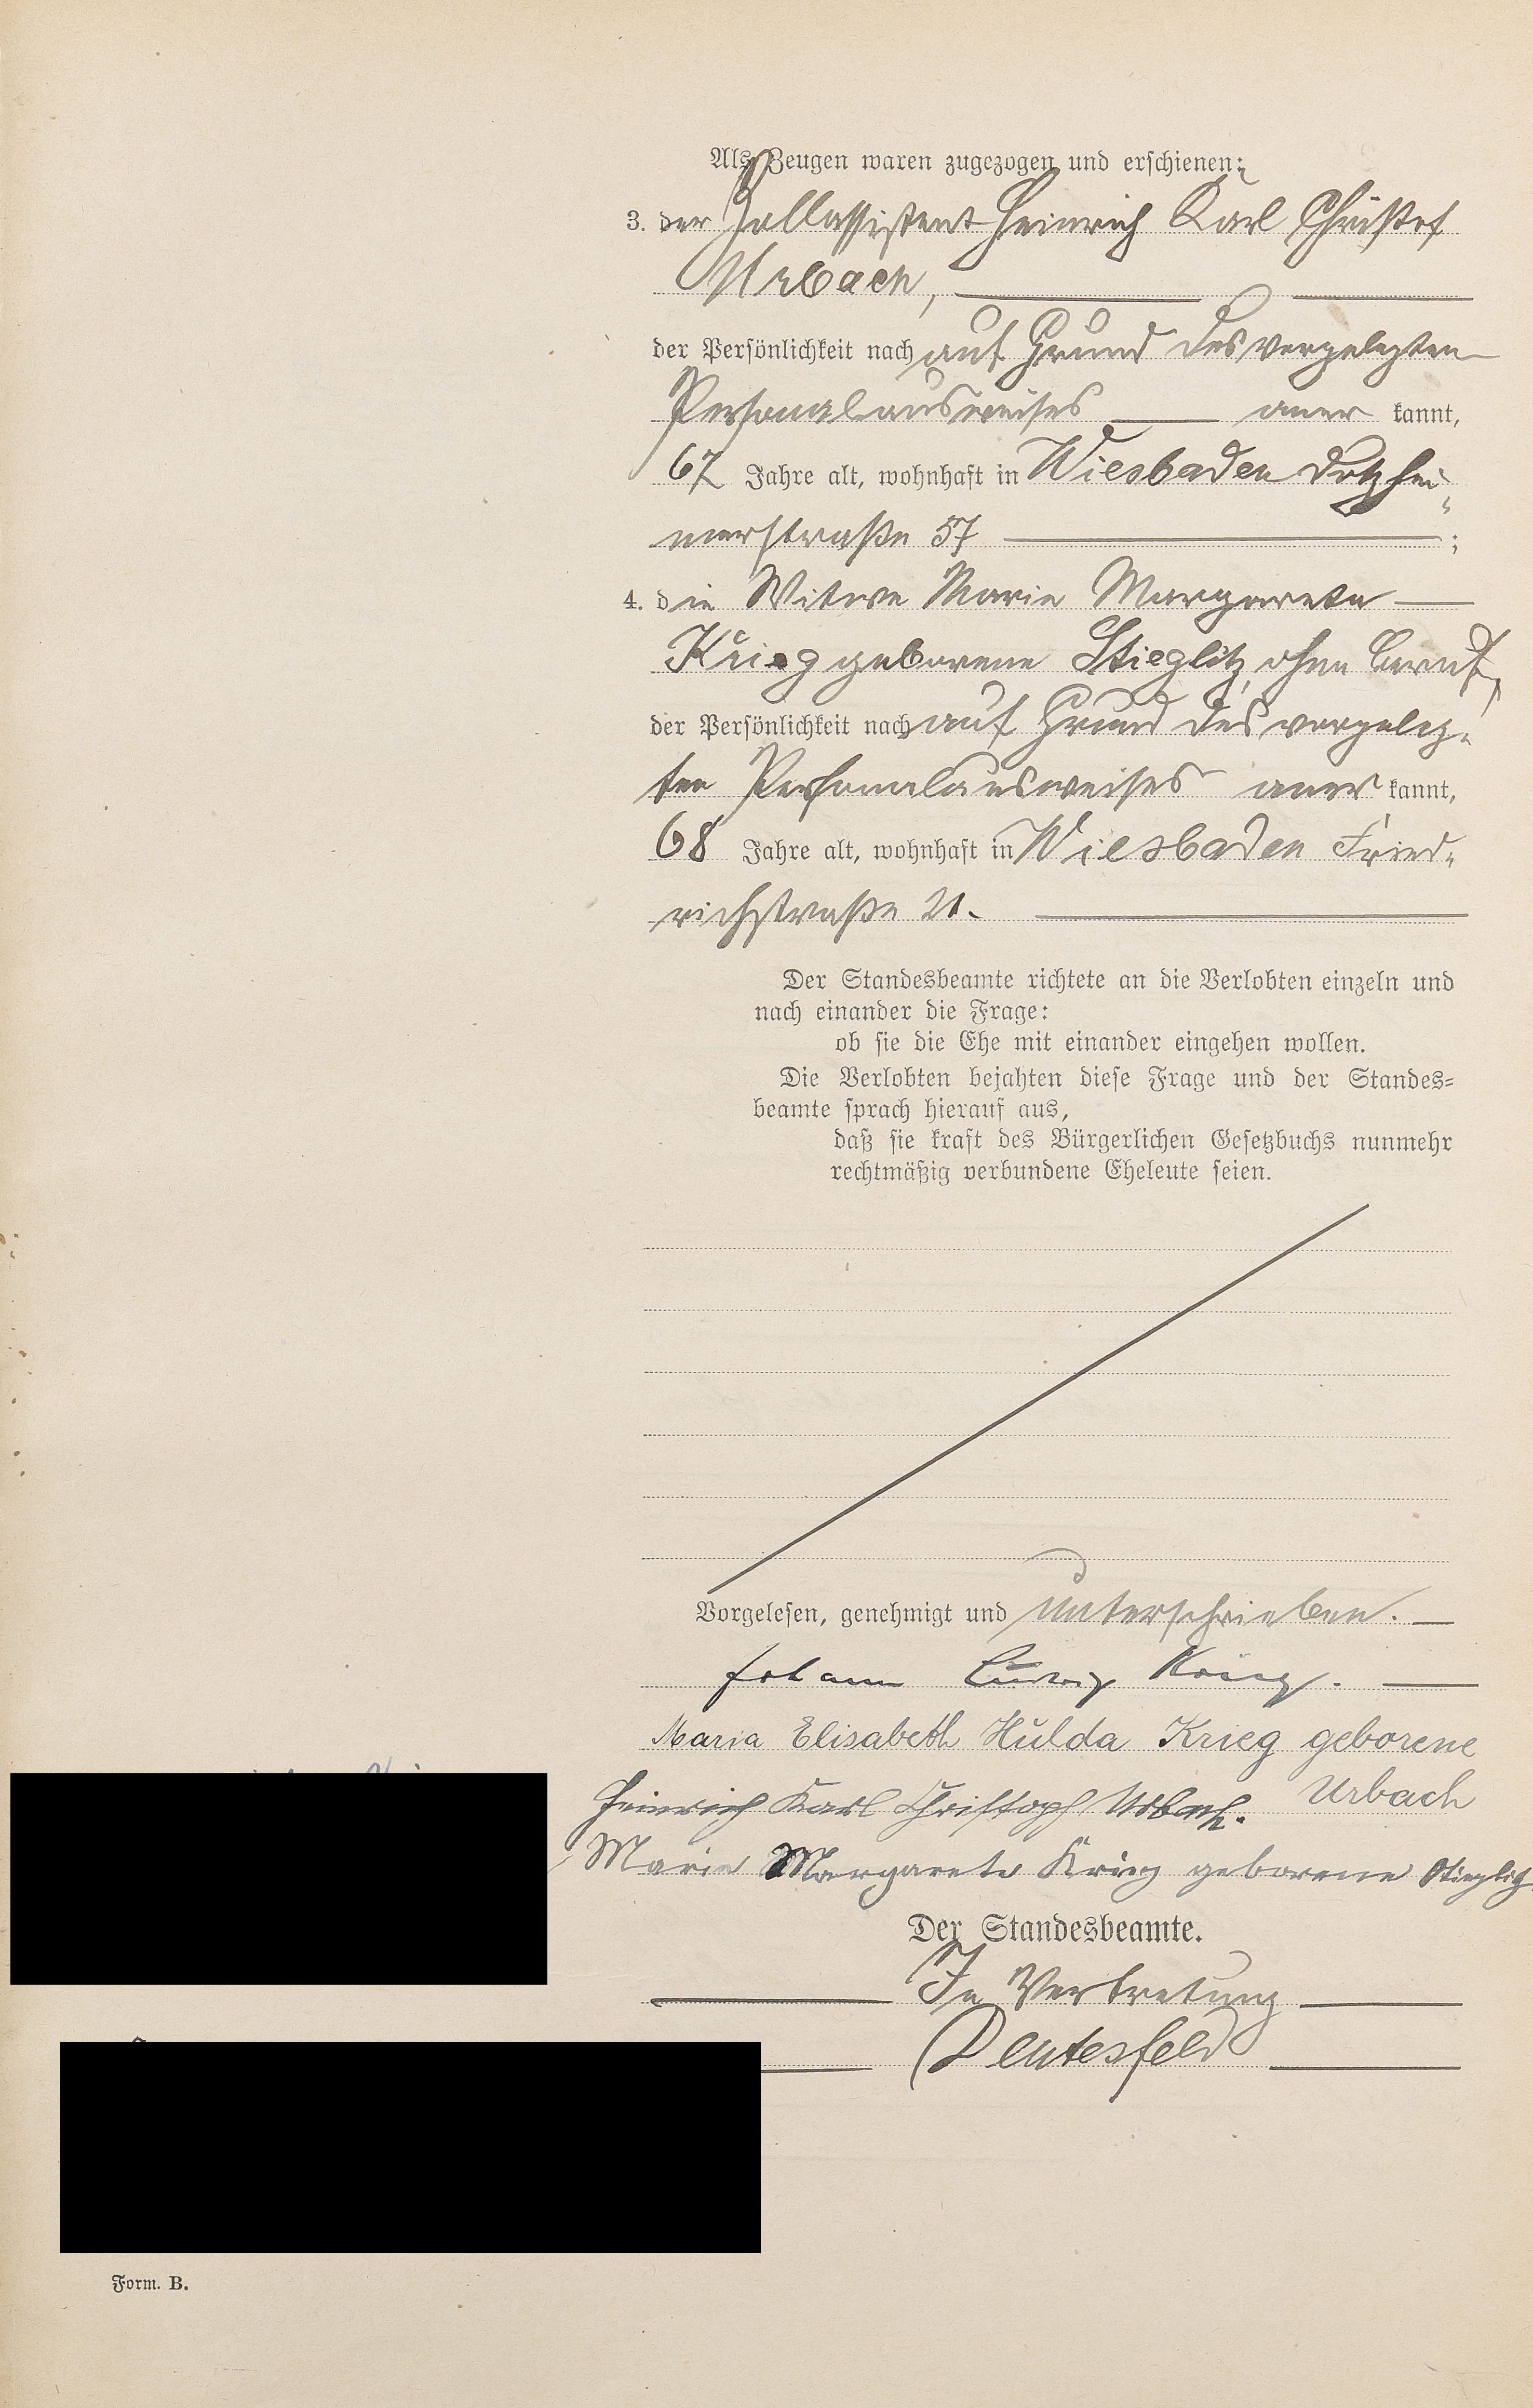 Als Zeugen waren zugezogen und erschienen:
3. der Zollassistent Heinrich Karl Christof
Urbach,
der Persönlichkeit nach auf Grund des vorgelegten
Personalausweises aner kannt,
67 Jahre alt, wohnhaft in Wiesbaden Dotzhei-
merstraße 57 ;
4. die Witwe Marie Margareta
Krieg geborene Stieglitz, ohne Beruf,
der Persönlichkeit nach auf Grund des vorgeleg-
ten Personalausweises aner kannt,
68 Jahre alt, wohnhaft in Wiesbaden Fried-
richstraße 21.
Der Standesbeamte richtete an die Verlobten einzeln und
nach einander die Frage:
ob sie die Ehe mit einander eingehen wollen.
Die Verlobten bejahten diese Frage und der Standes-
beamte sprach hierauf aus,
daß sie kraft des Bürgerlichen Gesetzbuchs nunmehr
rechtmäßig verbundene Eheleute seien.
Vorgelesen, genehmigt und unterschrieben.
Johann Ludwig Krieg.
Maria Elisabeth Hulda Krieg geborene
Urbach
Heinrich Karl Christoph Urbach.
Marie Margarete Krieg geborene Stieglitz
Der Standesbeamte.
In Vertretung
Deutesfeld
Form. B.